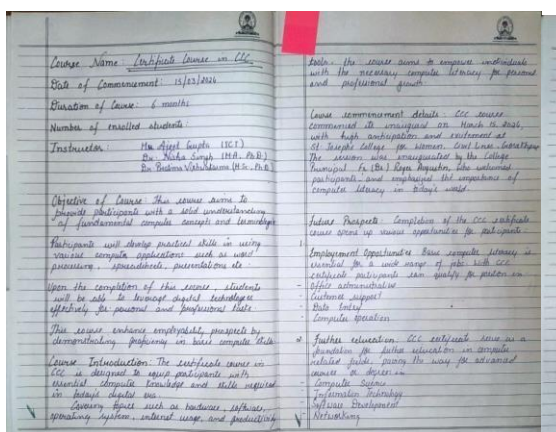 Course Name : Certificate Course in CCC
Date of Commencement : 15/03/2024
Duration of Course : 6 months
Number of enrolled students :
Instructor : Mr. Ajeet Gupta (ICT)
Dr. Nisha Singh (M.A., Ph.D.)
Dr. Pratima Vishwakarma (M.Sc., Ph.D.)
Objective of Course : This course aims to
provide participants with a solid understanding
of fundamental computer concepts and terminology
Participants will develop practical skills in using
various computer applications such as word
processing, spreadsheets, presentations etc.
Upon the completion of this course, students
will be able to leverage digital technologies
effectively for personal and professional tasks.
This course enhance employability prospects by
demonstrating proficiency in basic computer skills.
Course Introduction : The certificate course in
CCC is designed to equip participants with
essential computer knowledge and skills required
in today's digital era.
Covering topics such as hardware, software,
operating system, internet usage, and productivity
tools. the course aims to empower individuals
with the necessary computer literacy for personal
and professional growth
Course commencement details : CCC course
commenced its inaugural on March 15, 2024,
with high anticipation and excitement at
St. Joseph's College for Women, Civil Lines, Gorakhpur
The session was inaugurated by the College
Principal Fr. (Dr.) Roger Augustin, who welcomed
participants and emphasized the importance of
computer literacy in today's world.
Future Prospects : Completion of the CCC certificate
course opens up various opportunities for participants :
1. Employment Opportunities Basic computer literacy is
essential for a wide range of jobs with CCC
certificate participants can qualify for position in
- Office administration
- Customer support
- Data Entry
- Computer operation
Further education : CCC certificate serve as a
foundation for further education in computer
related fields, paving the way for advanced
courses or degrees in
- Computer Science
- Information Technology
- Software Development
- Networking